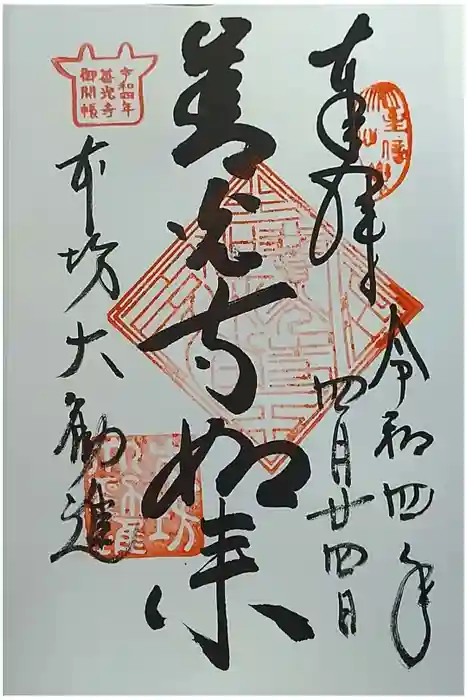 奉拝
令和四年
四月廿四日
善光寺如来
令和四年
善光寺
御開帳
本坊大勧進